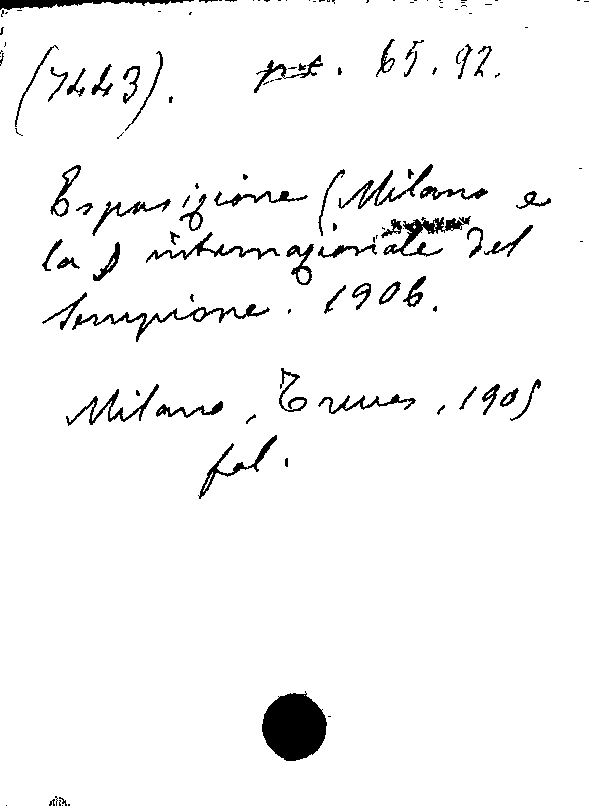 (7443). pt. 65.92.
Esposizione (Milano e
la) internazionale del
Sempione. 1906.
Milano, Treves, 1905
fol.